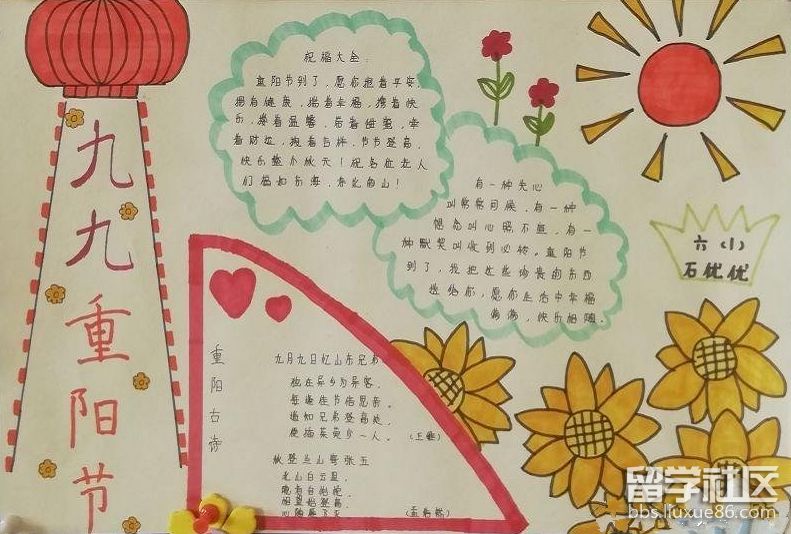 九九重阳节
祝福大全:
重阳节到了,愿你抱着平安,
拥有健康,揣着幸福,携着快
乐,搂着温馨,带着甜蜜,牵
着财运,拽着吉祥,节节登高,
快乐整个秋天!祝各位老人
们福如东海,寿比南山!
有一种关心
叫常常问候,有一种
想念叫心照不宣,有一
种默契叫收到必转。重阳节
到了,我把这些珍贵的东西
送给你,愿你生活中幸福
满满,快乐相随。
六(1)
石优优
重阳古诗
九月九日忆山东兄弟
独在异乡为异客,
每逢佳节倍思亲。
遥知兄弟登高处,
遍插茱萸少一人。
(王维)
秋登兰山寄张五
北山白云里,
相望始登高,
(孟浩然)
留学社区
bbs.liuxue86.com